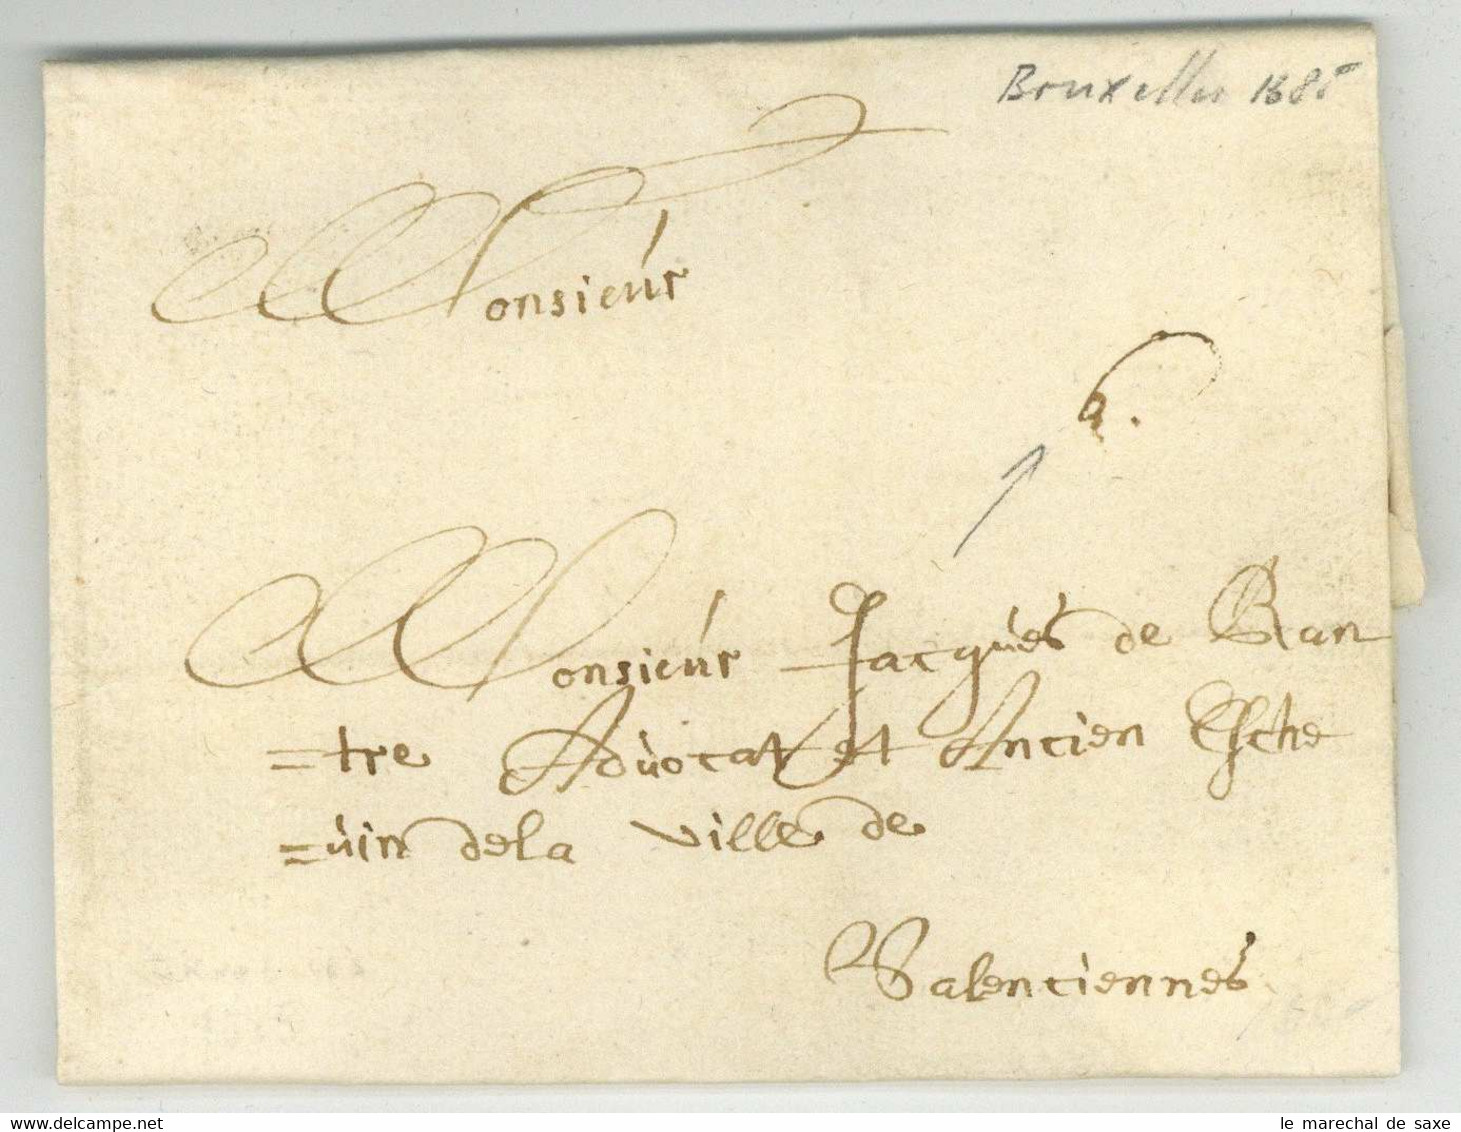 Bruxelles 1685
Monsieur
6.
Monsieur Jacques de Ran
=tre Advocat et Ancien Esche
=vin dela ville de
Valenciennes
le marechal de saxe